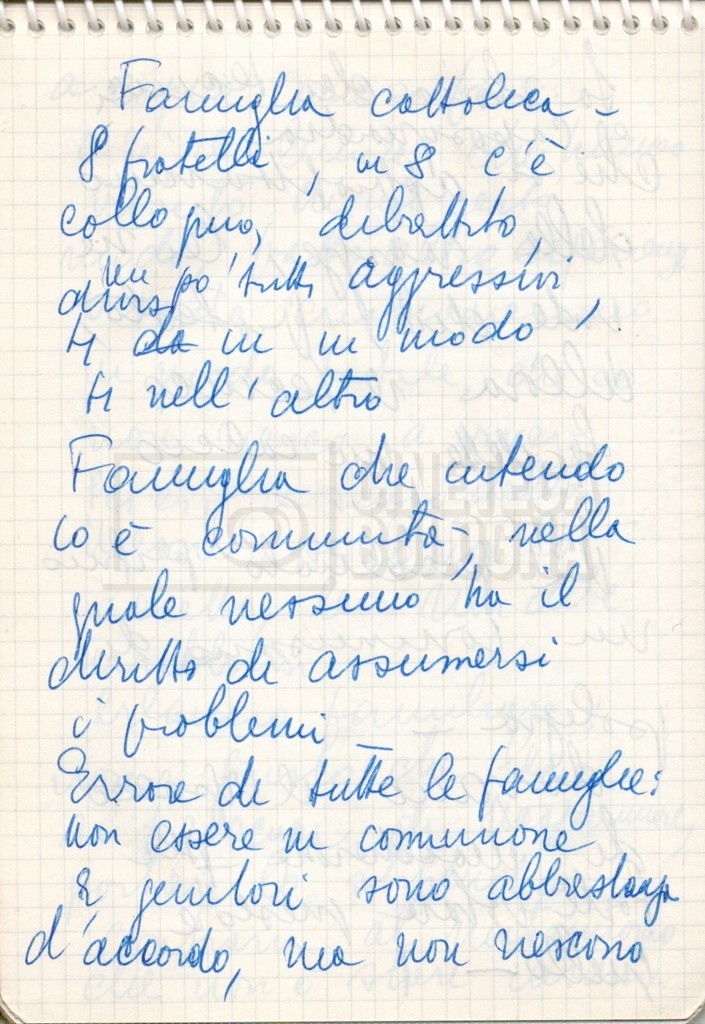 Famiglia cattolica -
8 fratelli, in 8 c'è
collo più, dibattito,
un po' tutti aggressivi,
divisi
4 da in in modo
4 nell'altro
Famiglia che intendo
io è comunità, nella
quale nessuno ha il
diritto di assumersi
i problemi -
Errore di tutte le famiglie:
non essere in comunione
I genitori sono abbastanza
d'accordo, ma non riescono
CINETECA
BOLOGNA